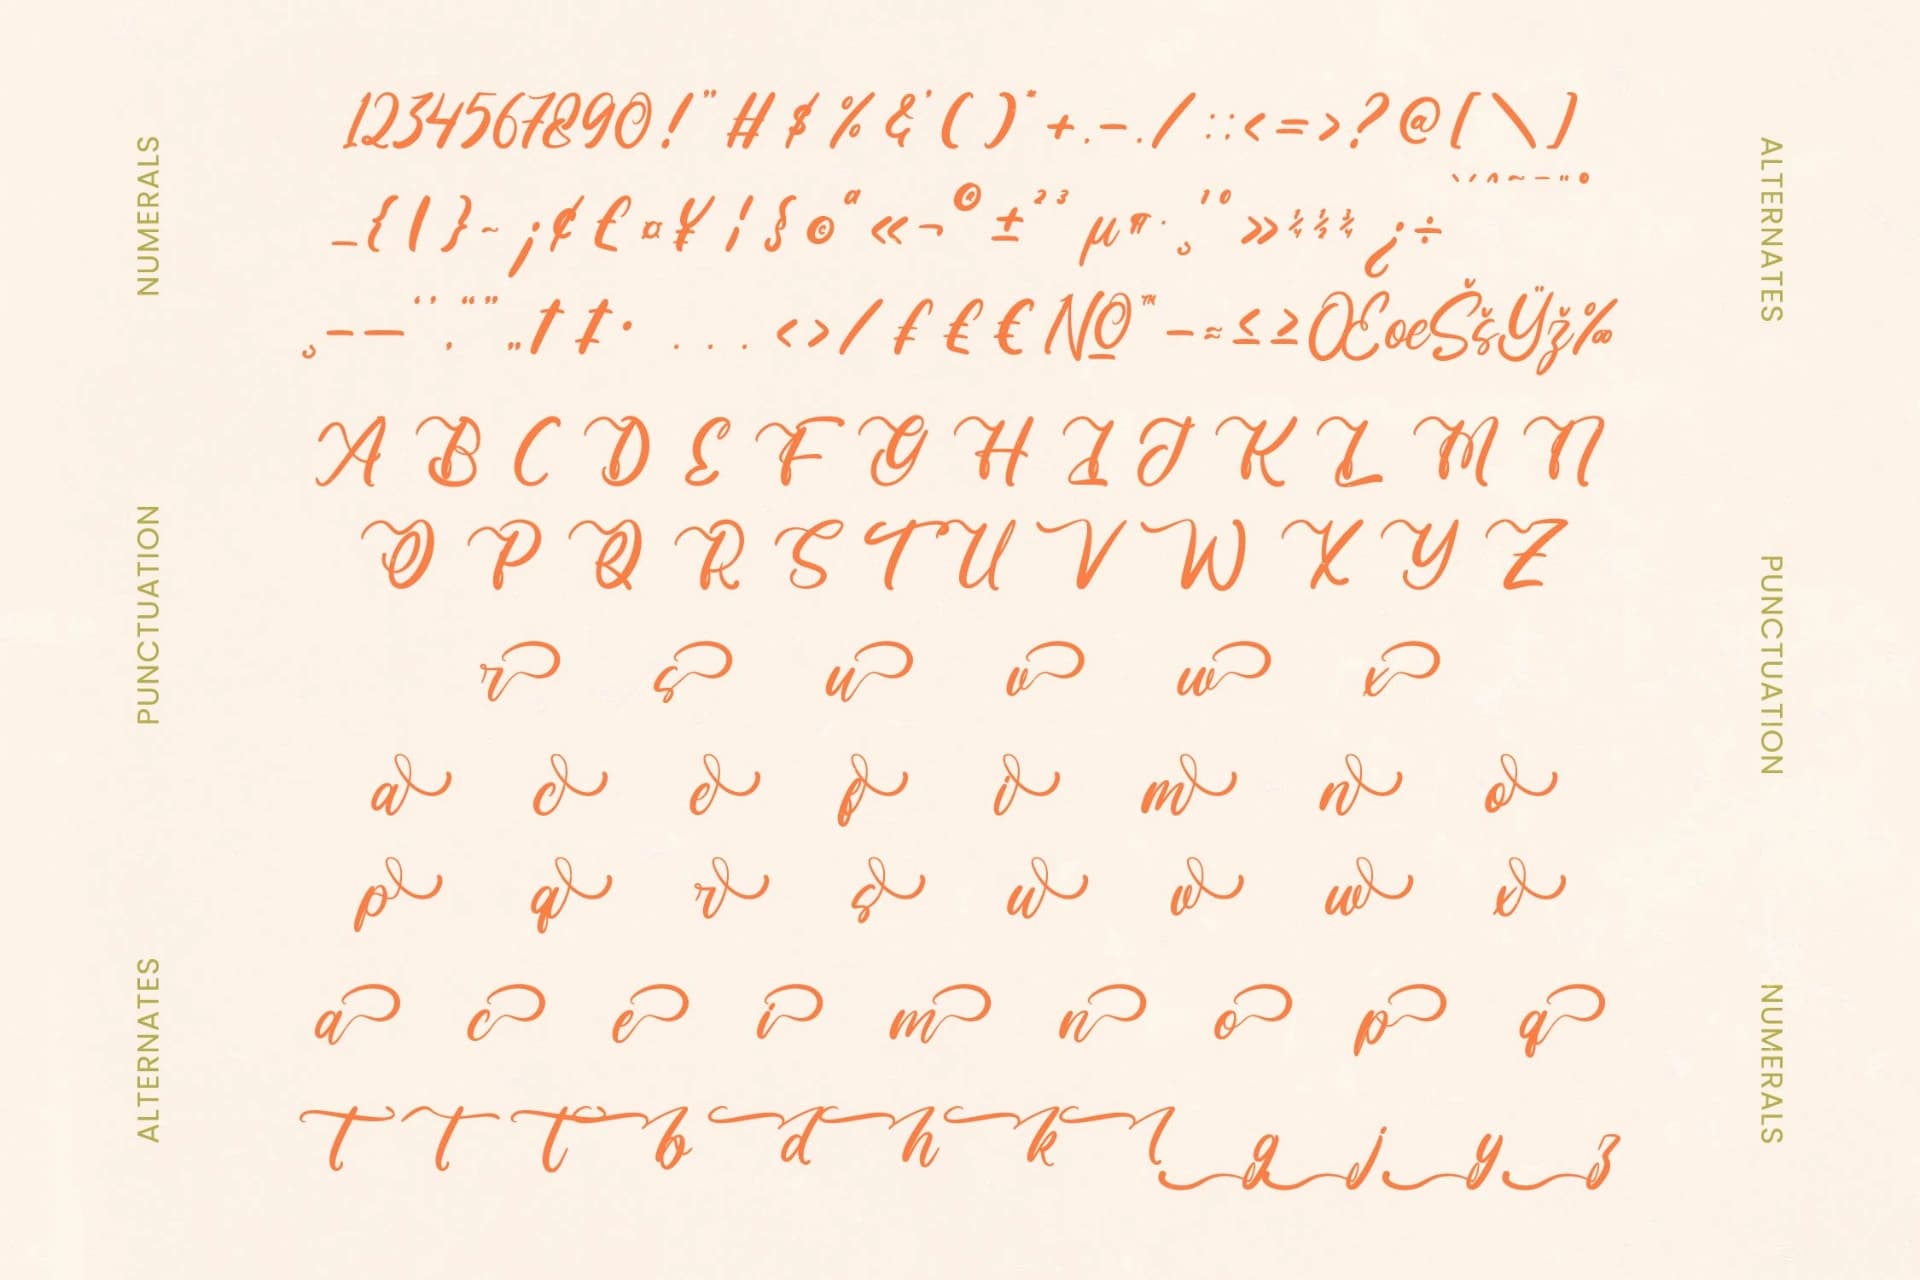 NUMERALS
PUNCTUATION
ALTERNATES
1234567890!"#$%&'()*+,-./:;<=>?@[\]
_{|}~¡¢£¤¥¦§©ª«¬®±²³µ¶·¸¹º»¼½¾¿÷
‚–—‘’‚“”„†‡•…‹›⁄ƒ£€№™−≈≤≥ŒœŠšŸž‰
A B C D E F G H I J K L M N
O P Q R S T U V W X Y Z
r s u v w x
a c e f i m n o
p q r s u v w x
a c e i m n o p q
t t t b d h k l g j y z
ALTERNATES
PUNCTUATION
NUMERALS